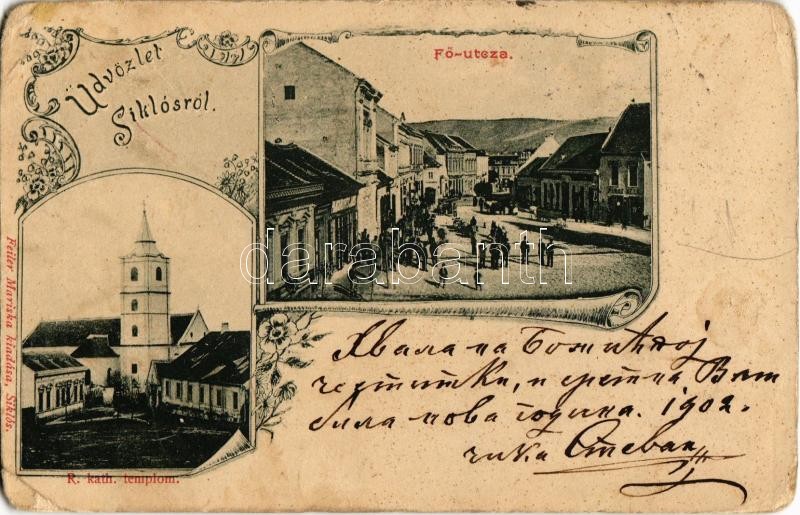 Üdvözlet
Siklósról.
Fő-utcza.
Feiler Mariska kiadása, Siklós.
R. kath. templom.
darabanth
Хвала на Божићној
честитки, и сретна Вам
била нова година. 1902.
чика Стеван